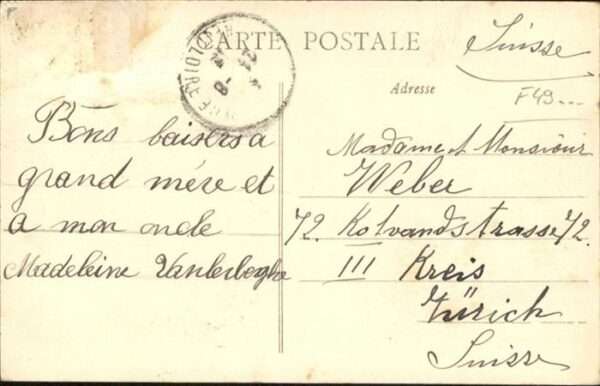 CARTE POSTALE
Suisse
Adresse
F49...
Bons baisers a
grand mére et
a mon oncle
Madeleine Vanlerberghe
Madame et Monsieur
Weber
72. Kolvandstrasse 72.
III Kreis
Zürich
Suisse